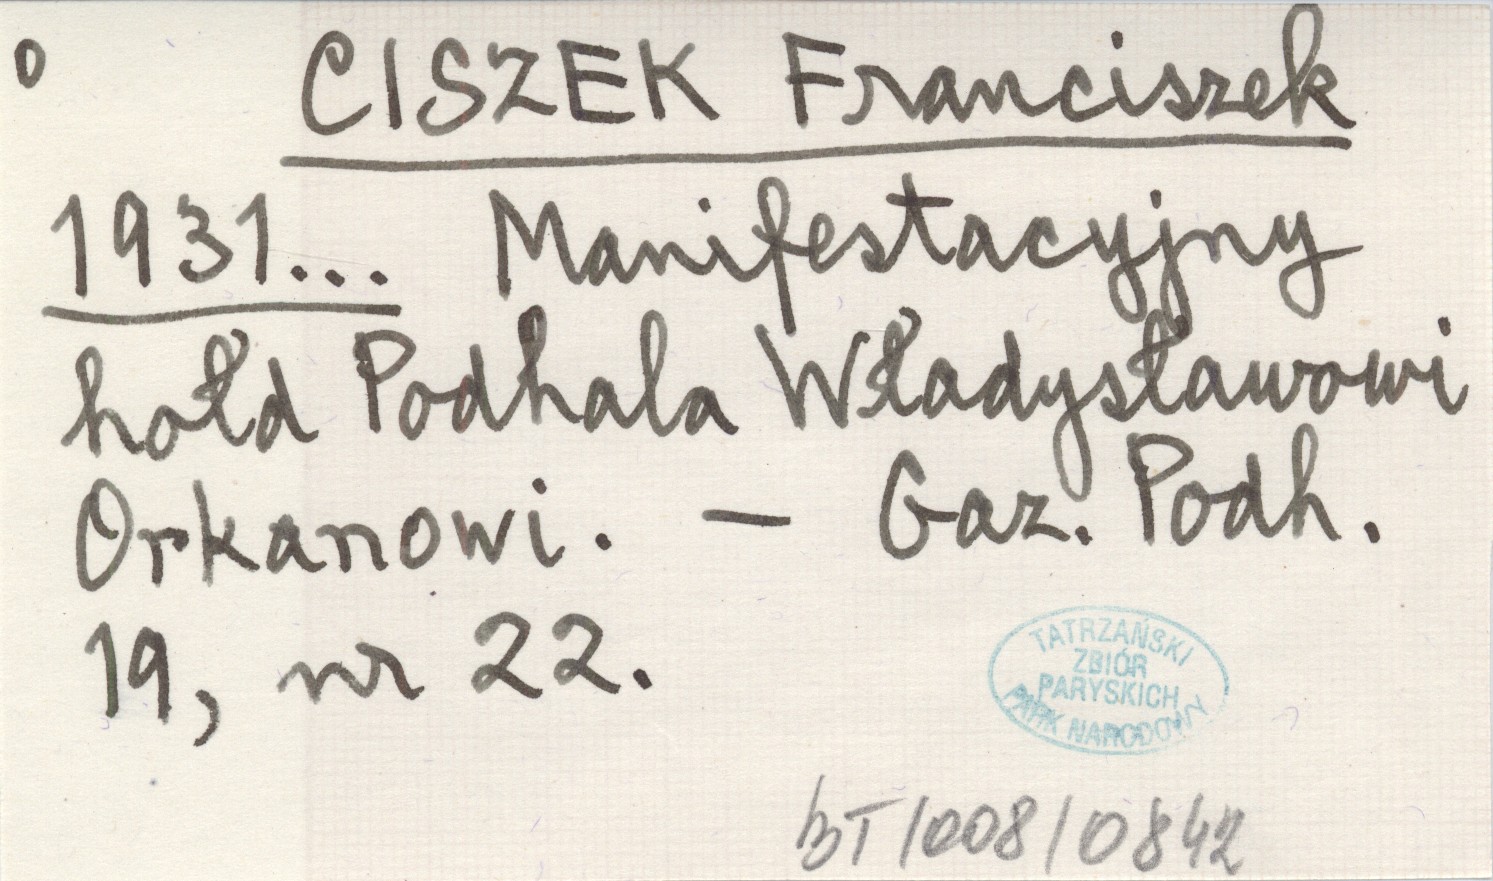 o CISZEK Franciszek
1931... Manifestacyjny
hołd Podhala Władysławowi
Orkanowi. — Gaz. Podh.
19, nr 22.
TATRZAŃSKI
ZBIÓR
PARYSKICH
PARK NARODOWY
BT/008/0842